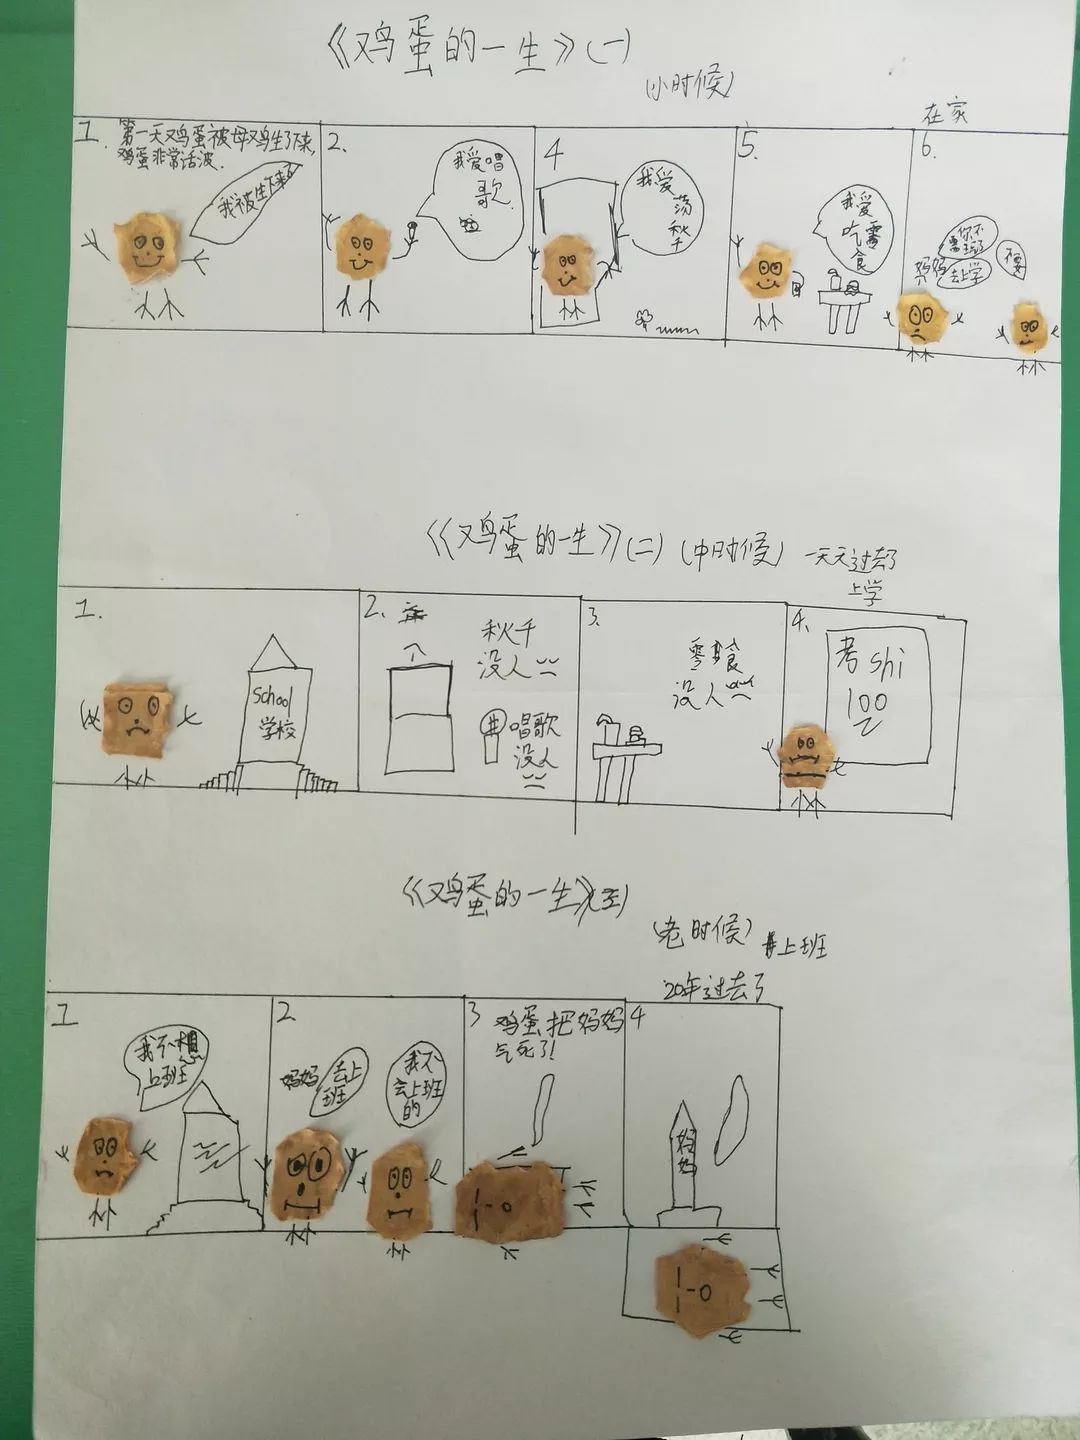 《鸡蛋的一生》(一)
(小时候)
在家
1.
第一天鸡蛋被母鸡生了下来,
鸡蛋非常活波.
我被生下来了
2.
我爱唱
歌.
啦
4
我爱
荡
秋
千
5.
我爱
吃零
食
6.
妈妈
去上学
不要
《鸡蛋的一生》(二)(中时候)
一天天过去了
上学
1.
School
学校
2.
秋千
没人
唱歌
没人
3.
零食
没人
4.
考shi
100
《鸡蛋的一生》(三)
(老时候)
上班
20年过去了
1
我不想
上班
2
妈妈
去上
班
我不
会上班
的
3
鸡蛋把妈妈
气死了!
4
妈
妈